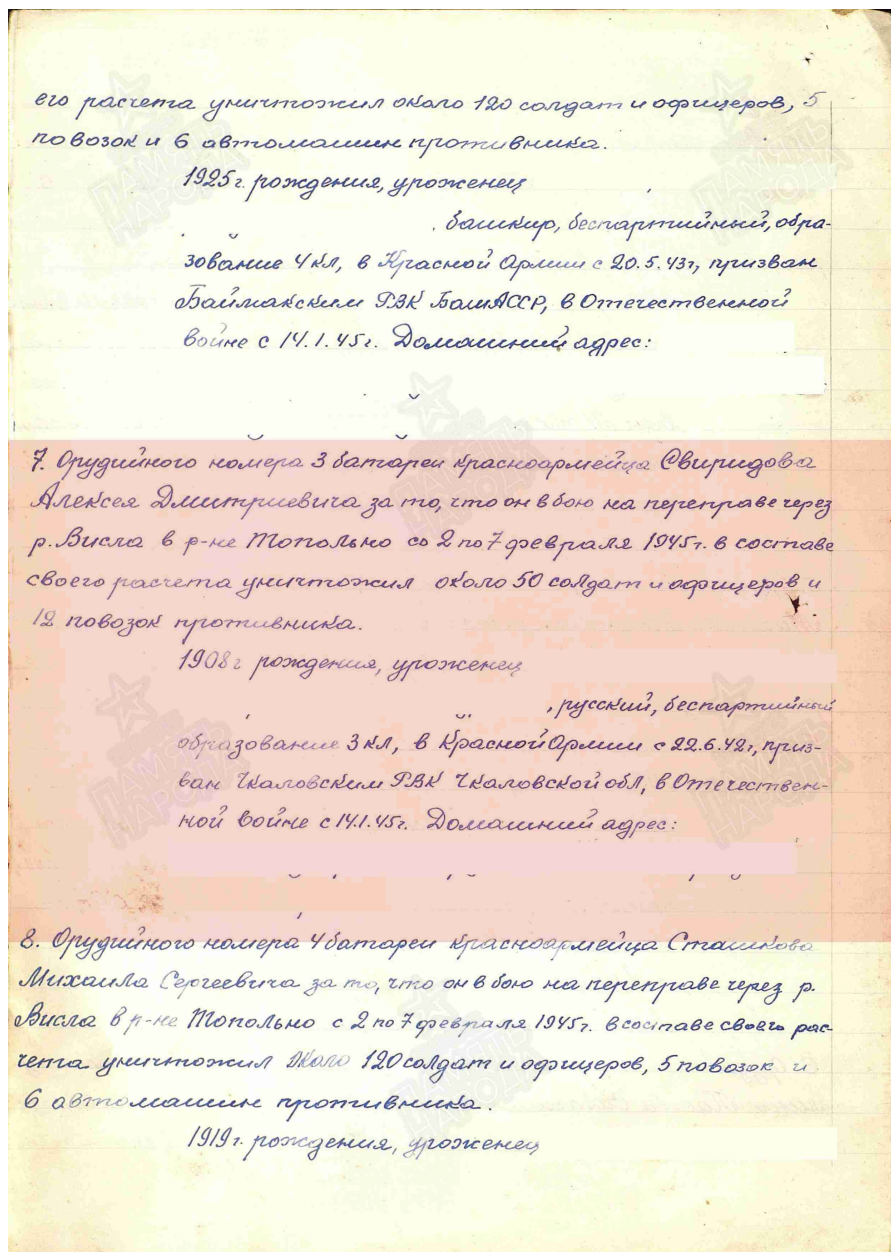 его расчета уничтожил около 120 солдат и офицеров, 5
повозок и 6 автомашин противника.
1925г. рождения, уроженец
, башкир, беспартийный, обра-
зование 4 кл, в Красной Армии с 20.5.43г, призван
Баймакским РВК БашАССР, в Отечественной
войне с 14.1.45г. Домашний адрес:
7. Орудийного номера 3 батареи красноармейца Свиридова
Алексея Дмитриевича за то, что он в бою на переправе через
р. Висла в р-не Топольно со 2 по 7 февраля 1945г. в составе
своего расчета уничтожил около 50 солдат и офицеров и
12 повозок противника.
1908г рождения, уроженец
, русский, беспартийный
образование 3 кл, в Красной Армии с 22.6.42г, приз-
ван Чкаловским РВК Чкаловской обл, в Отечествен-
ной войне с 14.1.45г. Домашний адрес:
8. Орудийного номера 4 батареи красноармейца Сташкова
Михаила Сергеевича за то, что он в бою на переправе через р.
Висла в р-не Топольно с 2 по 7 февраля 1945г. в составе своего рас-
чета уничтожил около 120 солдат и офицеров, 5 повозок и
6 автомашин противника.
1919г. рождения, уроженец
ПАМЯТЬ
НАРОДА